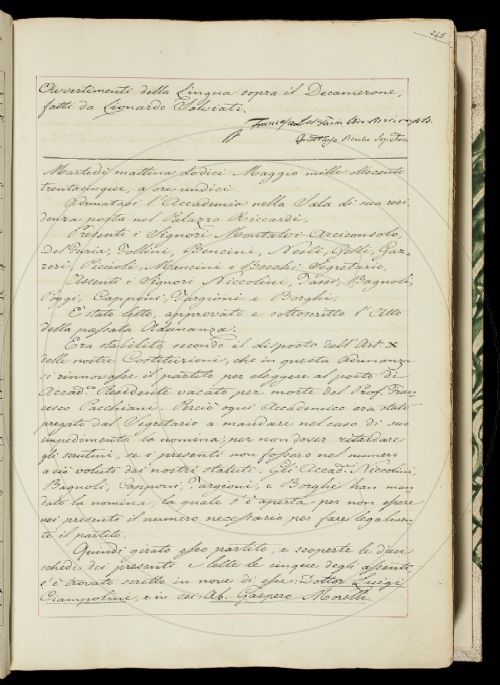 246
Avvertimenti della Lingua sopra il Decamerone,
fatti da Lionardo Salviati.
Francesco Del Furia Vice Arciconsolo
Fruttuoso Becchi Segretario
Martedì mattina dodici Maggio mille ottocento
trentacinque, a ore undici
Adunatasi l'Accademia nella Sala di sua resi
denza posta nel Palazzo Riccardi,
Presenti i Signori Montalvi Arciconsolo,
Del Furia, Follini, Bencini, Nesti, Gelli, Gaz-
zeri, Piccioli, Mancini e Becchi Segretario,
Assenti i Signori Niccolini, Bagnoli,
Poggi, Capponi, Targioni e Borghi.
È stato letto, approvato e sottoscritto l'Atto
della passata Adunanza.
Era stabilito secondo il disposto dell'Art. X
delle nostre Costituzioni, che in questa Adunanza
si rinnovasse il partito per eleggere al posto di
Accad.co Residente vacato per morte del Prof. Fran
cesco Pacchiani. Perciò ogni Accademico era stato
pregato dal Segretario a mandare nel caso di suo
impedimento la nomina, per non dover ritardare
gli scrutini, se i presenti non fossero nel numero
a ciò voluto dai nostri statuti. Gli Accad. Niccolini,
Bagnoli, Capponi, Targioni, e Borghi han man
dato la nomina, la quale s'è aperta per non essere
noi presenti il numero necessario per fare legalmen
te il partito.
Quindi girato esso partito, e scoperte le dieci
schede dei presenti e lette le cinque degli assenti
s'è trovato scritto in nove di esse Dottor Luigi
Ciampolini, e in sei Ab. Gaspero Morelli